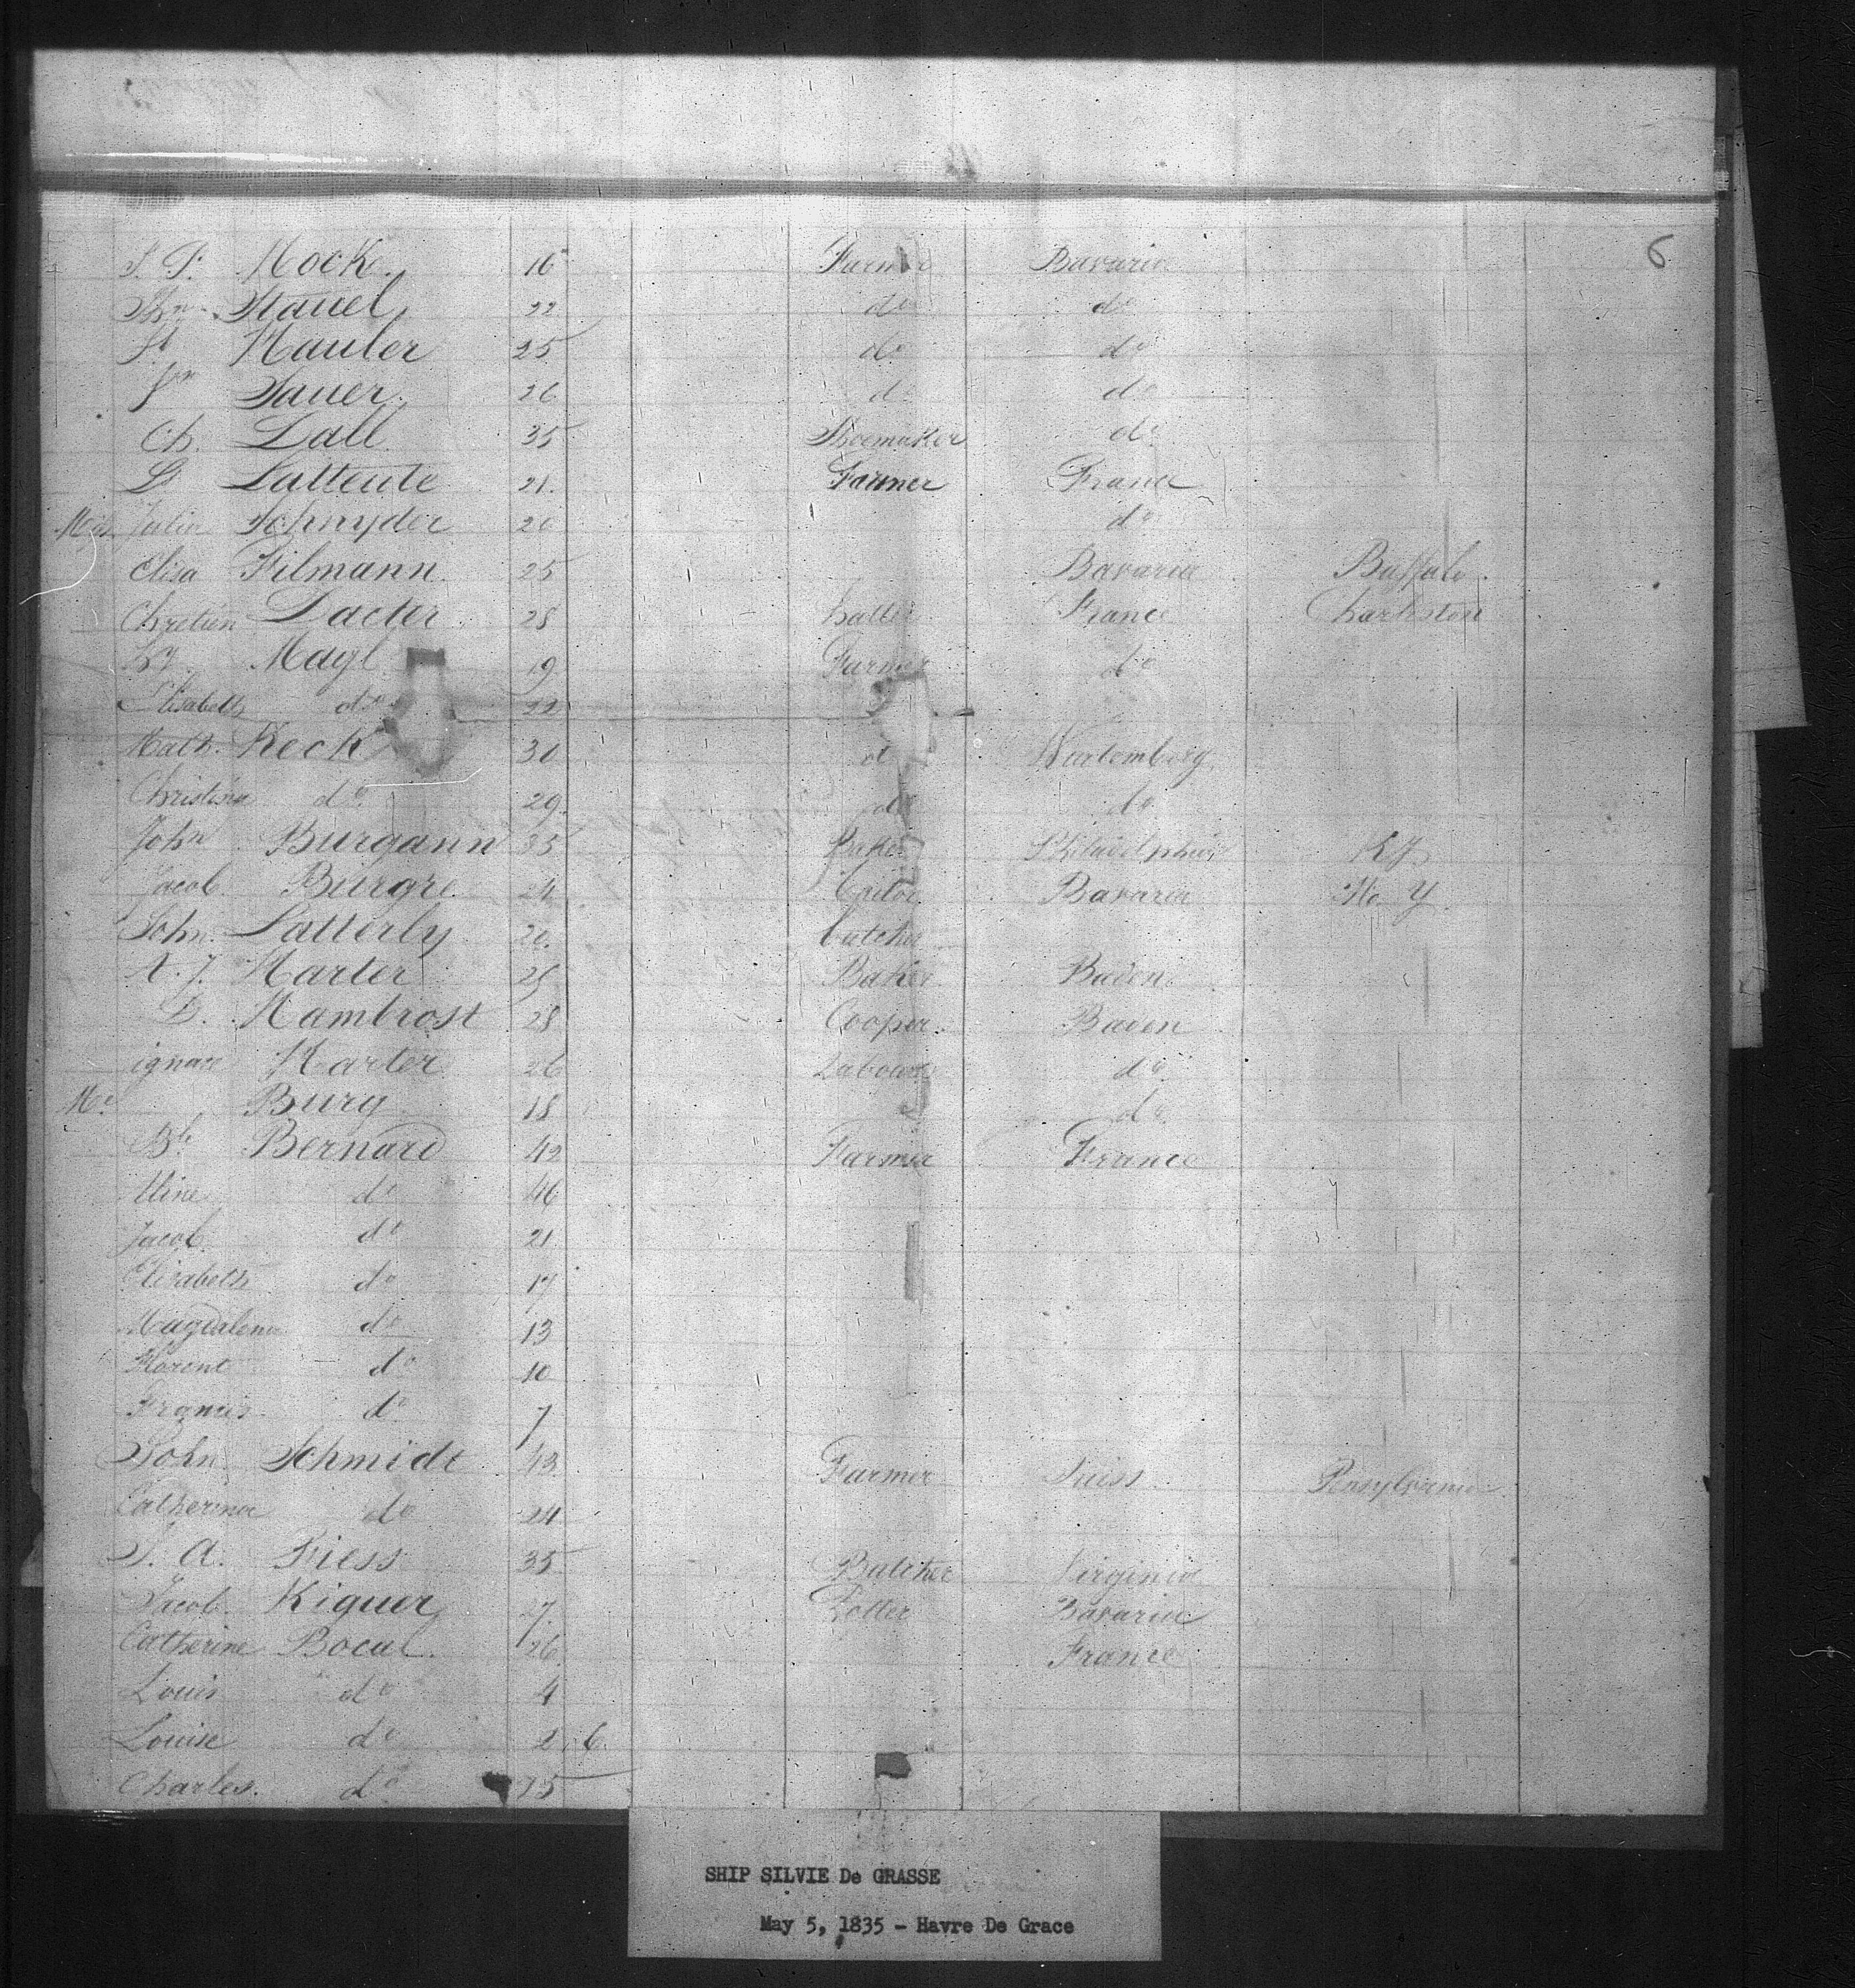 6
J. P. Hocke 16 Farmer Bavaria
Stauel 22 do do
Hauler 25 do do
Sauer 26 do do
Ch. Lall 35 Shoemaker do
Lattente 21 Farmer France
Julia Schnyder 20 do
Elisa Filmann 25 Bavaria Buffalo
Chretien Dacter 28 hatter France Charleston
Magl 19 Farmer do
Elisabeth do 22
Math. Keck 30 do Wurtemberg
Christina do 29 do do
John Burgann 35 Baker Philadelphia
Jacob Burgre 24 Bavaria
John Latterly 20 butcher
Harter 25 Baker Baden
D. Hambrost 28 Cooper Baden
ignace Harter 26 Labourer do
Burg 18 do
Bernard 42 Farmer France
do 46
Jacob do 21
Elisabeth do 17
Magdalena do 13
Florent do 10
Francis do 7
John Schmidt 43 Farmer Suiss Pensylvania
Catherina do 24
J. A. Fiess 35 Butcher Virginia
Jacob Kiguer 27 Potter Bavaria
Catherine Bocal 26 France
Louis do 4
Louise do 2 6
Charles do 15
SHIP SILVIE De GRASSE
May 5, 1835 - Havre De Grace